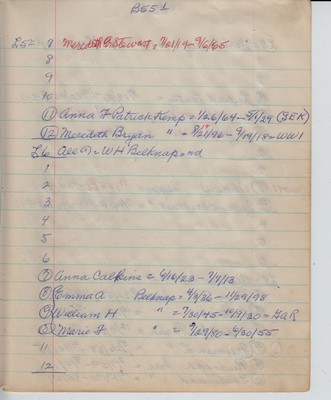 B551
L52 - 7 Meredith G Stewart = 7/21/19 - 9/6/65
8
9
10
(11) Anna F Patrick Kemp = 1/26/64 - 9/1/29 (BEK)
(12) Meredith Bryan " = 8/31/96 - 9/19/18 = WW1
L6 All = WH Belknap = md
1
2
3
4
5
6
(7) Anna Calkine = 6/16/23 - 7/7/13
(8) Emma A Belknap = 4/3/36 - 11/29/98
(9) William H " = 7/30/45 - 1/30 = GAR
(10) Marie F " = 9/29/80 - 6/30/55
11
12